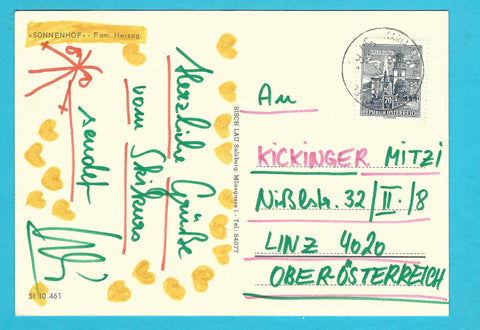 «SONNENHOF» - Fam. Herzog
Herzliche Grüße
vom Skikurs
sendet
SI 10.461
RUSCH LAU Salzburg, Münzgasse 1 - Tel. 84077
70
REPUBLIK ÖSTERREICH
An
KICKINGER MITZI
Nißlstr. 32/II./8
LINZ 4020
OBERÖSTERREICH